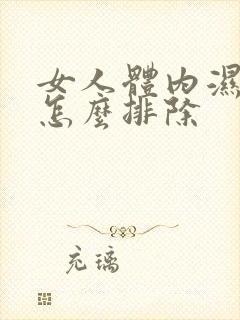 女人體內濕
怎麼排除
充璃